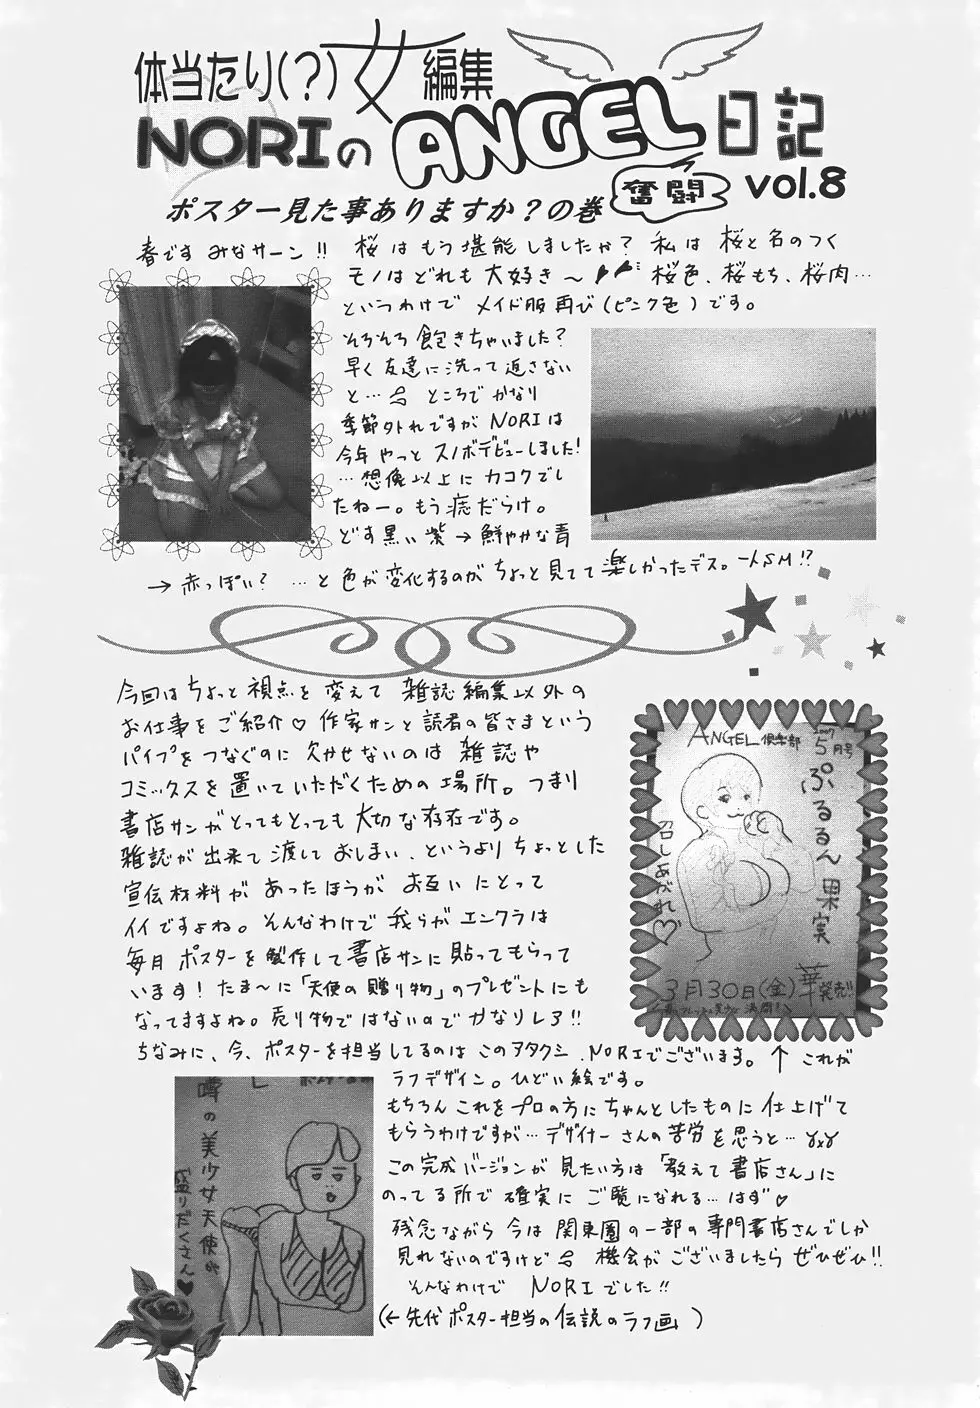 体当たり(?)女編集
NORIのANGEL日記
奮闘
vol.8
ポスター見た事ありますか?の巻
春です みなサーン!! 桜はもう堪能しましたか? 私は 桜と名のつく
モノはどれも 大好き～ 桜色、桜もち、桜肉…
というわけで メイド服再び(ピンク色)です。
そろそろ 飽きちゃいました?
早く 友達に洗って返さない
と… ところで かなり
季節外れですが NORIは
今年 やっと スノボデビューしました!
…想像以上に カコクでし
たねー。もう痣だらけ。
どす黒い紫→鮮やかな青
→赤っぽい? …と色が変化するのが ちょっと見てて楽しかったデス。一人SM!?
今回はちょっと視点を変えて 雑誌編集以外の
お仕事をご紹介♡ 作家サンと読者の皆さまという
パイプをつなぐのに欠かせないのは 雑誌や
コミックスを置いていただくための場所。つまり
書店サンがとってもとっても大切な存在です。
雑誌が出来て渡しておしまい、というより ちょっとした
宣伝材料が あったほうが お互いにとって
イイですよね。そんなわけで我らがエンクラは
毎月 ポスターを製作して書店サンに貼ってもらって
います! たま～に「天使の贈り物」のプレゼントにも
なってますよね。売り物ではないのでかなりレア!!
ちなみに、今、ポスターを担当してるのは このアタクシ、NORIでございます。↑これが
ラフデザイン。ひどい絵です。
もちろん これをプロの方に ちゃんとしたものに 仕上げて
もらうわけですが…デザイナーさんの苦労を思うと…
この完成バージョンが見たい方は「教えて書店さん」に
のってる所で確実に ご覧になれる…はず♡
残念ながら 今は 関東圏の一部の専門書店さんでしか
見れないのですけど 機会がございましたら ぜひぜひ!!
そんなわけで NORIでした!!
(←先代ポスター担当の伝説のラフ画)
ANGEL倶楽部
5月号
ぷるるん果実
召しあがれ♡
3月30日(金)発売!!
噂の美少女天使が
盛りだくさん♥